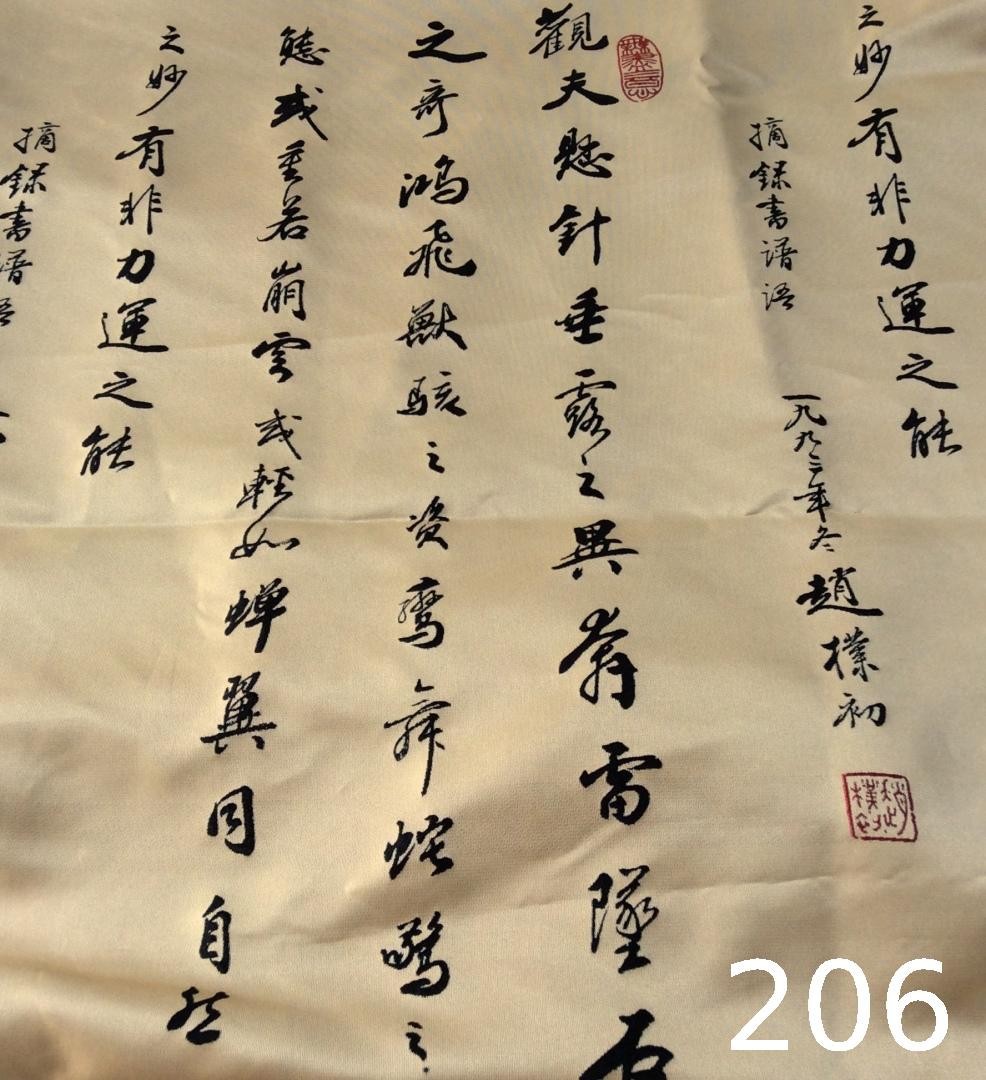 之妙有非力運之能
摘録書谱语
一九九三年冬趙樸初
趙樸初
觀夫懸針垂露之異奔雷墜石
之奇鴻飛獸駭之资鸾舞蛇驚之
態或重若崩雲或輕如蟬翼同自然
之妙有非力運之能
摘録書谱语
206